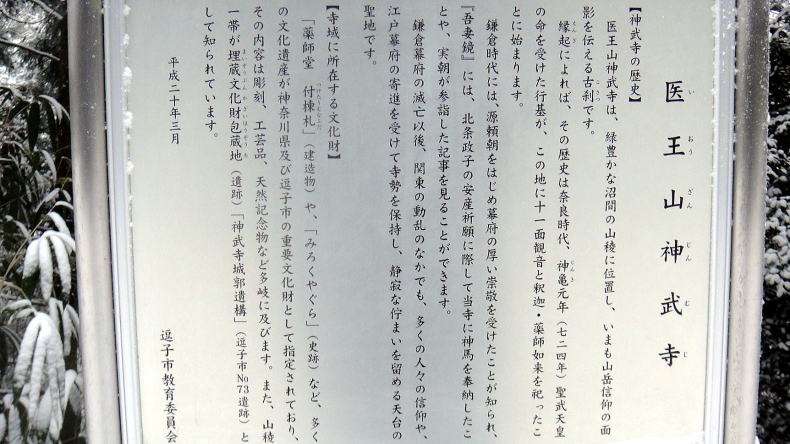 医王山神武寺
いおうざんじんむじ
【神武寺の歴史】
医王山神武寺は、緑豊かな沼間の山稜に位置し、いまも山岳信仰の面
影を伝える古刹です。
こさつ
縁起によれば、その歴史は奈良時代、神亀元年（七二四年）聖武天皇
えんぎ
じんき
の命を受けた行基が、この地に十一面観音と釈迦・薬師如来を祀ったこ
とに始まります。
鎌倉時代には、源頼朝をはじめ幕府の厚い崇敬を受けたことが知られ、
『吾妻鏡』には、北条政子の安産祈願に際して当寺に神馬を奉納したこ
とや、実朝が参詣した記事を見ることができます。
鎌倉幕府の滅亡以後、関東の動乱のなかでも、多くの人々の信仰や、
江戸幕府の寄進を受けて寺勢を保持し、静寂な佇まいを留める天台の
聖地です。
【寺域に所在する文化財】
「薬師堂　付棟札」（建造物）や、「みろくやぐら」（史跡）など、多く
つけたりむなふだ
の文化遺産が神奈川県及び逗子市の重要文化財として指定されており、
その内容は彫刻、工芸品、天然記念物など多岐に及びます。また、山稜
一帯が埋蔵文化財包蔵地（遺跡）「神武寺城郭遺構」（逗子市No73遺跡）と
まいぞうぶんかざいほうぞうち
して知られています。
平成二十年三月
逗子市教育委員会